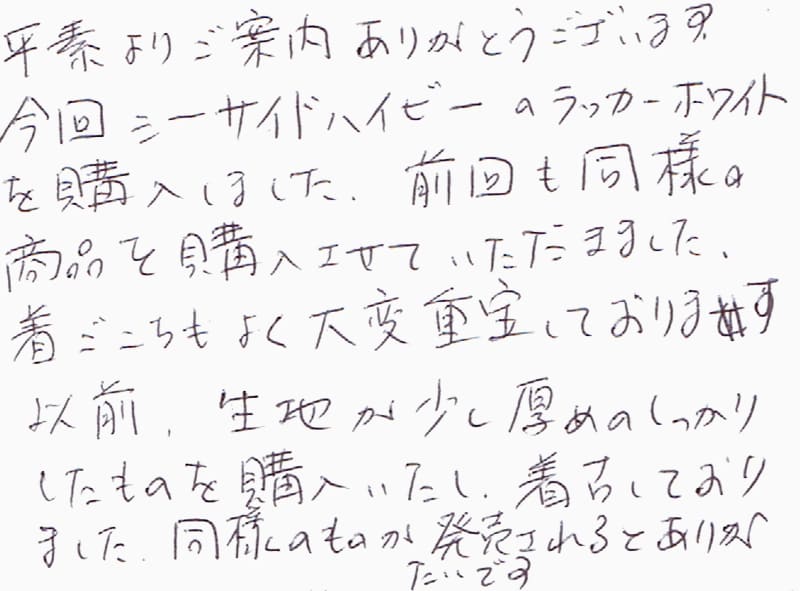 平素よりご案内ありがとうございます
今回シーサイドハイビーのラッカーホワイト
を購入しました．前回も同様の
商品を購入させていただきました．
着ごこちもよく大変重宝しております
以前，生地が少し厚めのしっかり
したものを購入いたし，着古しており
ました．同様のものが発売されるとありが
たいです